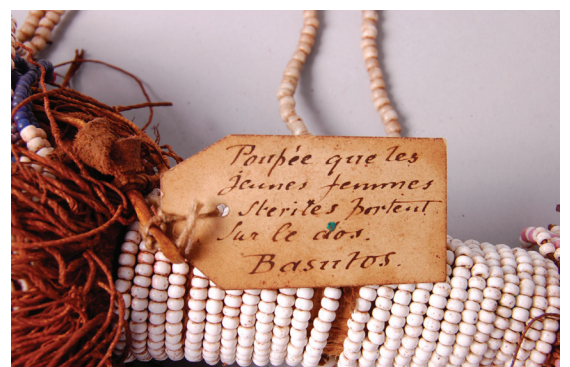 Poupée que les
jeunes femmes
stériles portent
sur le dos.
Basutos.